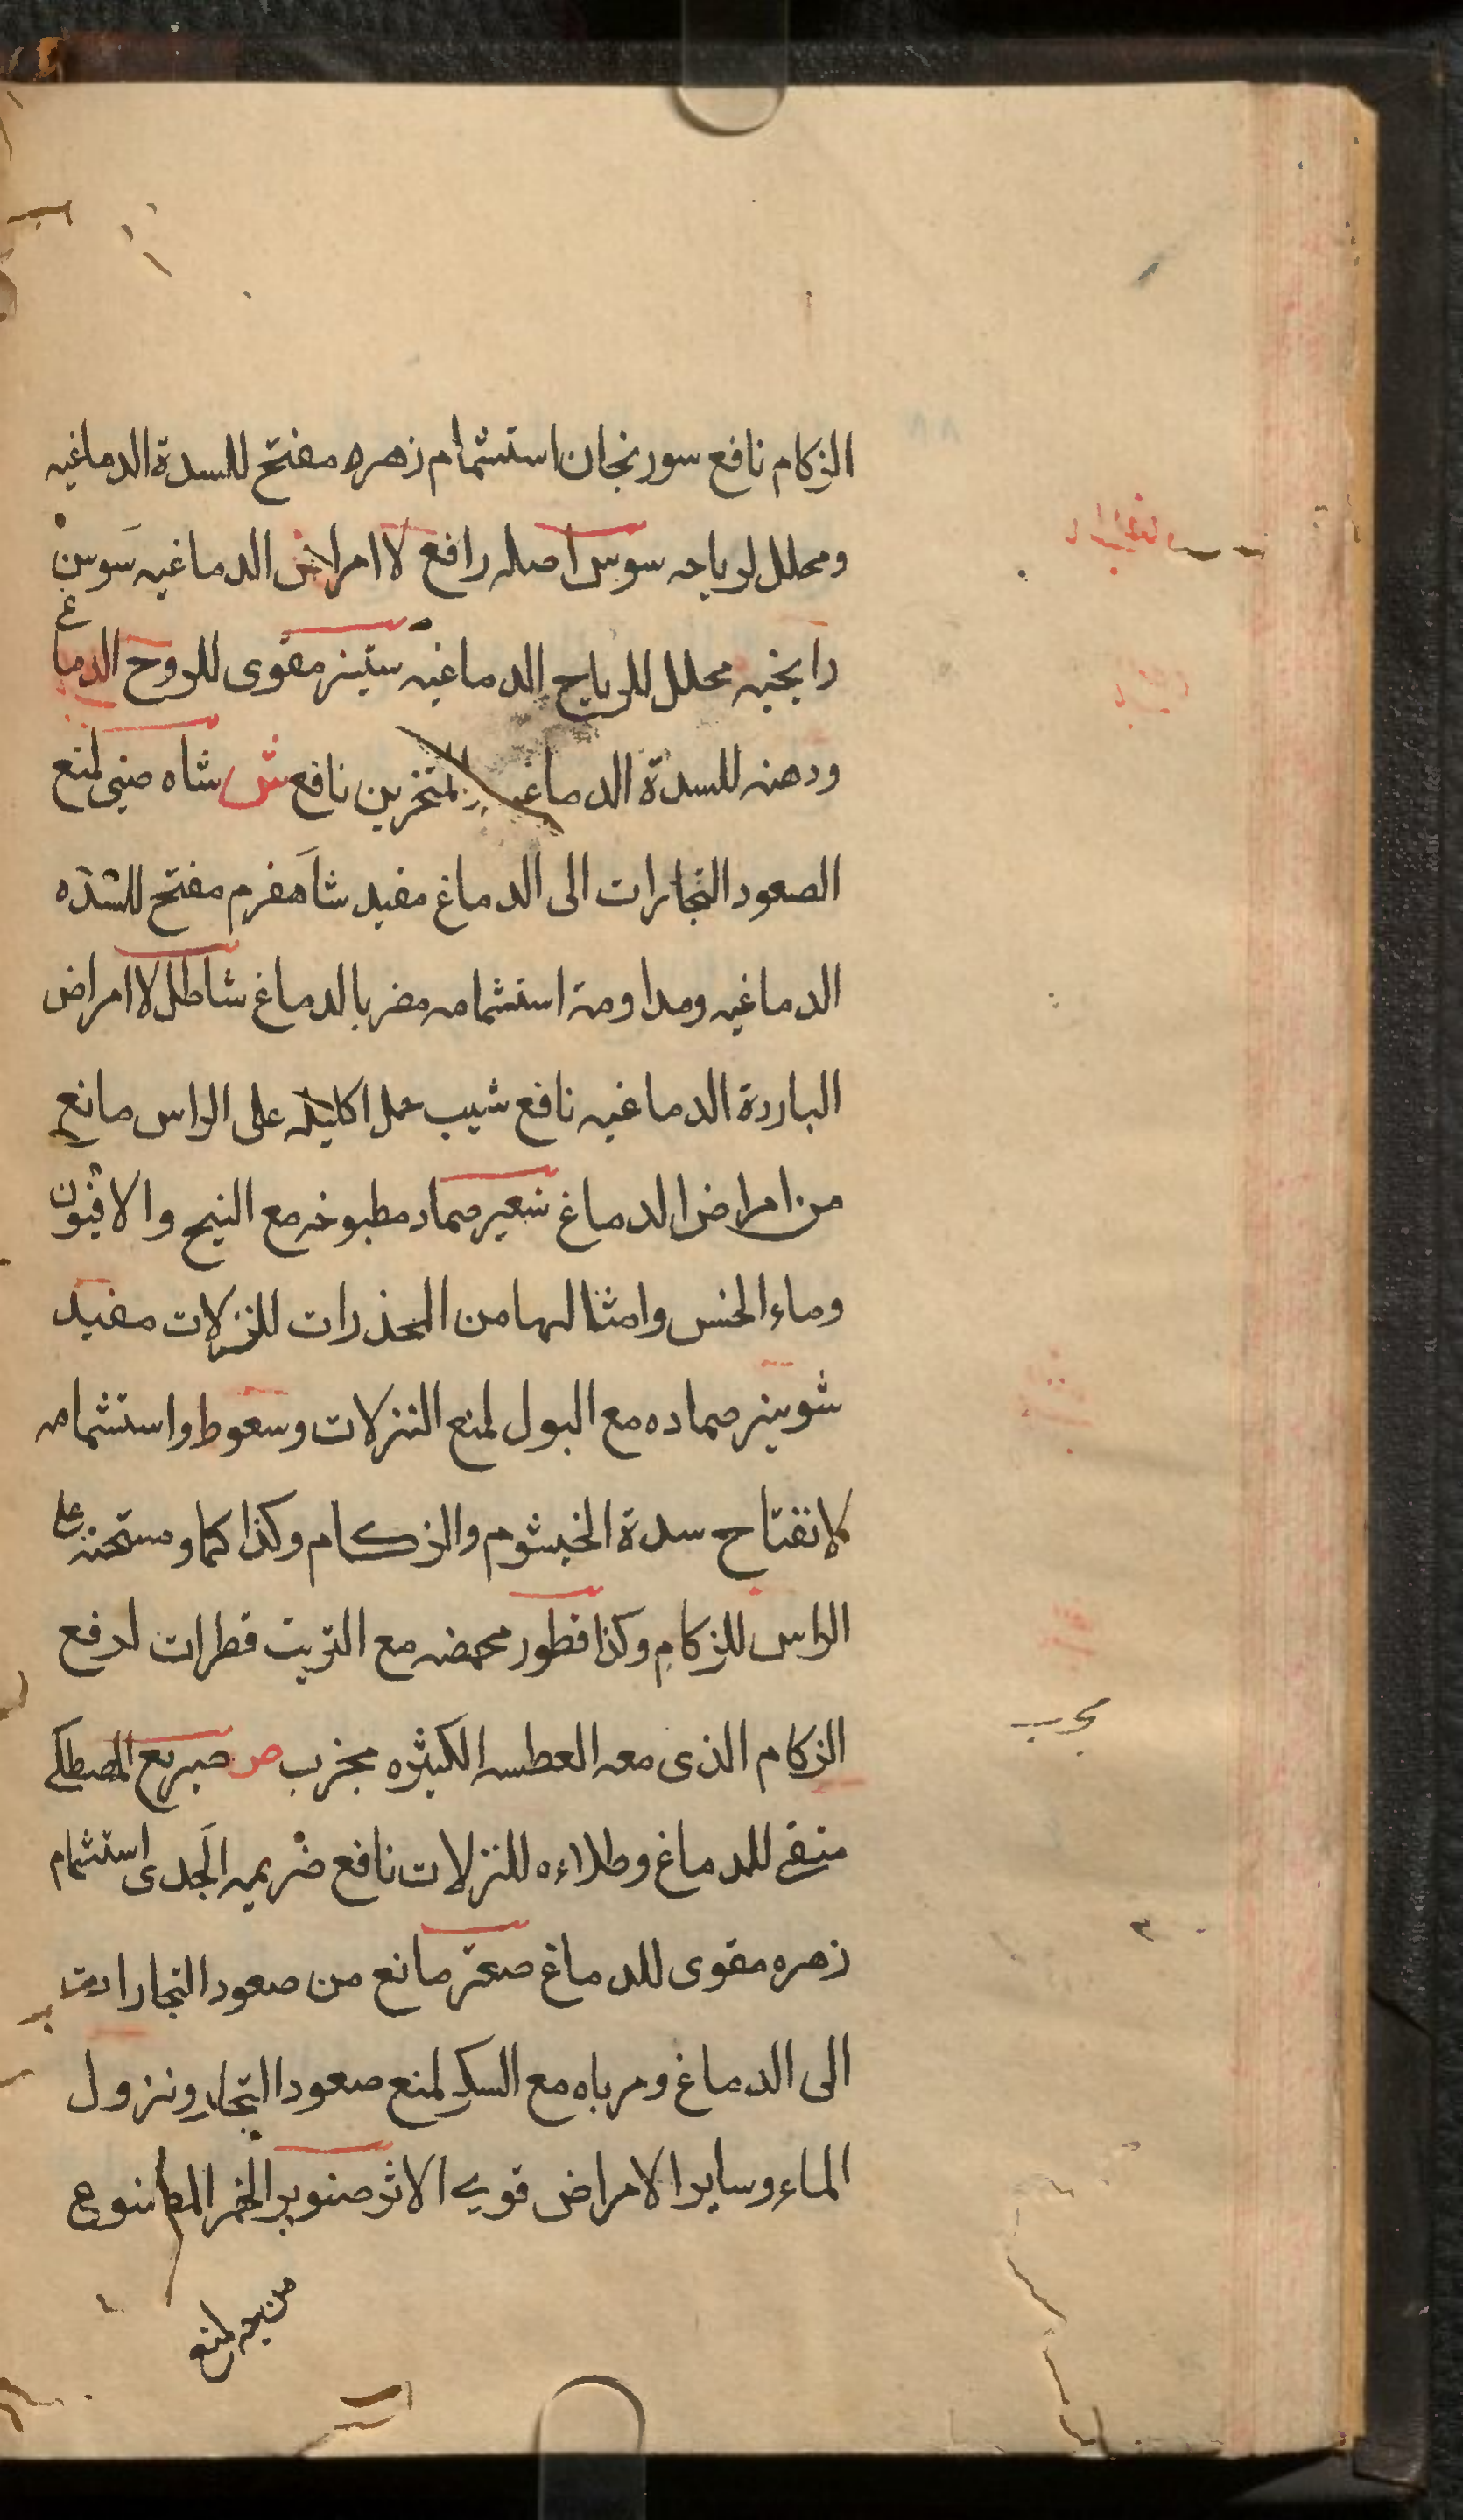 الزكام نافع سورنجان استشمام زهره مفتح للسدة الدماغيه
ومحلل لرياحه سوس اصله رافع لاامراض الدماغيه سَوسنْ
رايحته محلل للرياح الدماغيه سنيز مقوى للروح الدماغ
ودهنه للسدة الدماغيه المنخرين نافع ش شاه صينى لمنع
الصعود البخارات الى الدماغ مفيد شاهفرم مفتح للسده
الدماغيه ومداومة استشمامه مضر بالدماغ شاطل لاامراض
الباردة الدماغيه نافع شيب حمل اكليله على الراس مانع
من امراض الدماغ شعير ضماد مطبوخه مع البنج والافيون
وماء الخس وامثالها من المخذرات للنزلات مفيد
شونيز ضماده مع البول لمنع النزلات وسعوط واستشمامه
لانفتاح سدة الخيشوم والزكام وكذا كماد مسخنه على
الراس للزكام وكذا قطور محمضه مع الزيت قطرات لدفع
الزكام الذى معه العطسه الكثيره مجرب ص صبر مع المصطكى
منقى للدماغ وطلاءه للنزلات نافع ضريمه الجدى استشمام
زهره مقوى للدماغ صعتر مانع من صعود البخارات
الى الدماغ ومرباه مع السكر لمنع صعود البخار ونزول
الماء وساير الامراض قوى الاثر صنوبر الخمر المصنوع
منه لمنع
مجرب